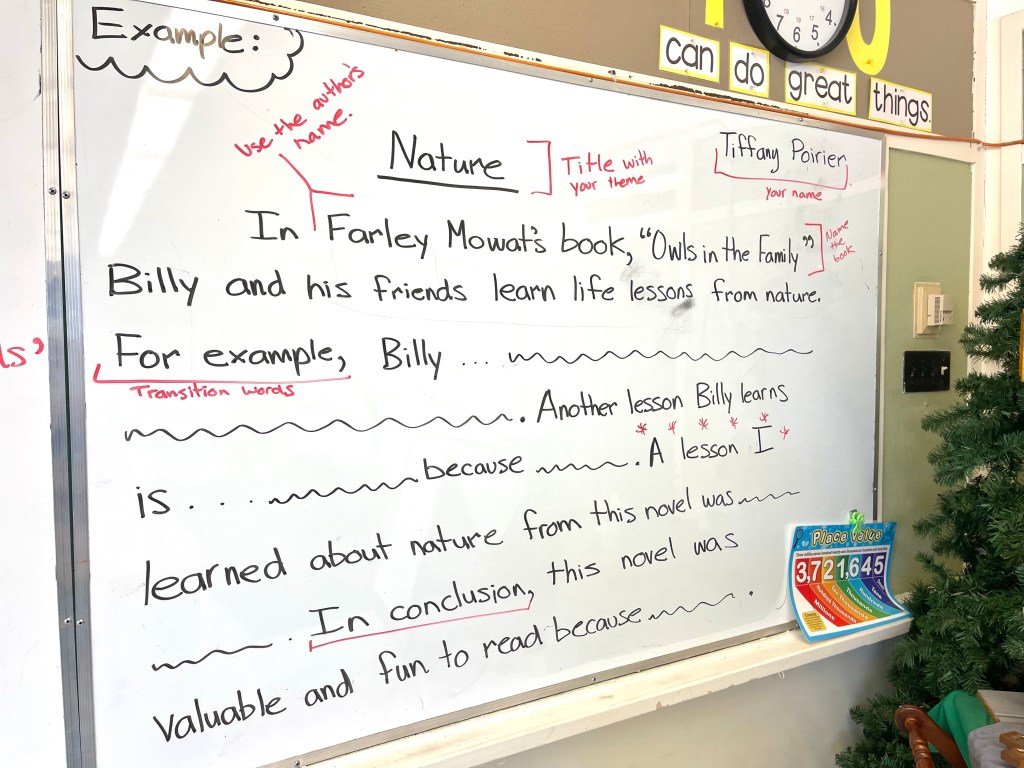 can do great things.
7 6 5 4
18 17 16
Example:
Use the author's
name.
Nature
Title with
your theme
Tiffany Poirier
your name
In Farley Mowat's book, "Owls in the Family"
Name
the
book
Billy and his friends learn life lessons from nature.
ls'
For example, Billy ...
Transition words
. Another lesson Billy learns
is . . . because . A lesson I
learned about nature from this novel was
. In conclusion, this novel was
valuable and fun to read because .
Place Value
3,721,645
Millions
Thousands
Hundreds
Tens